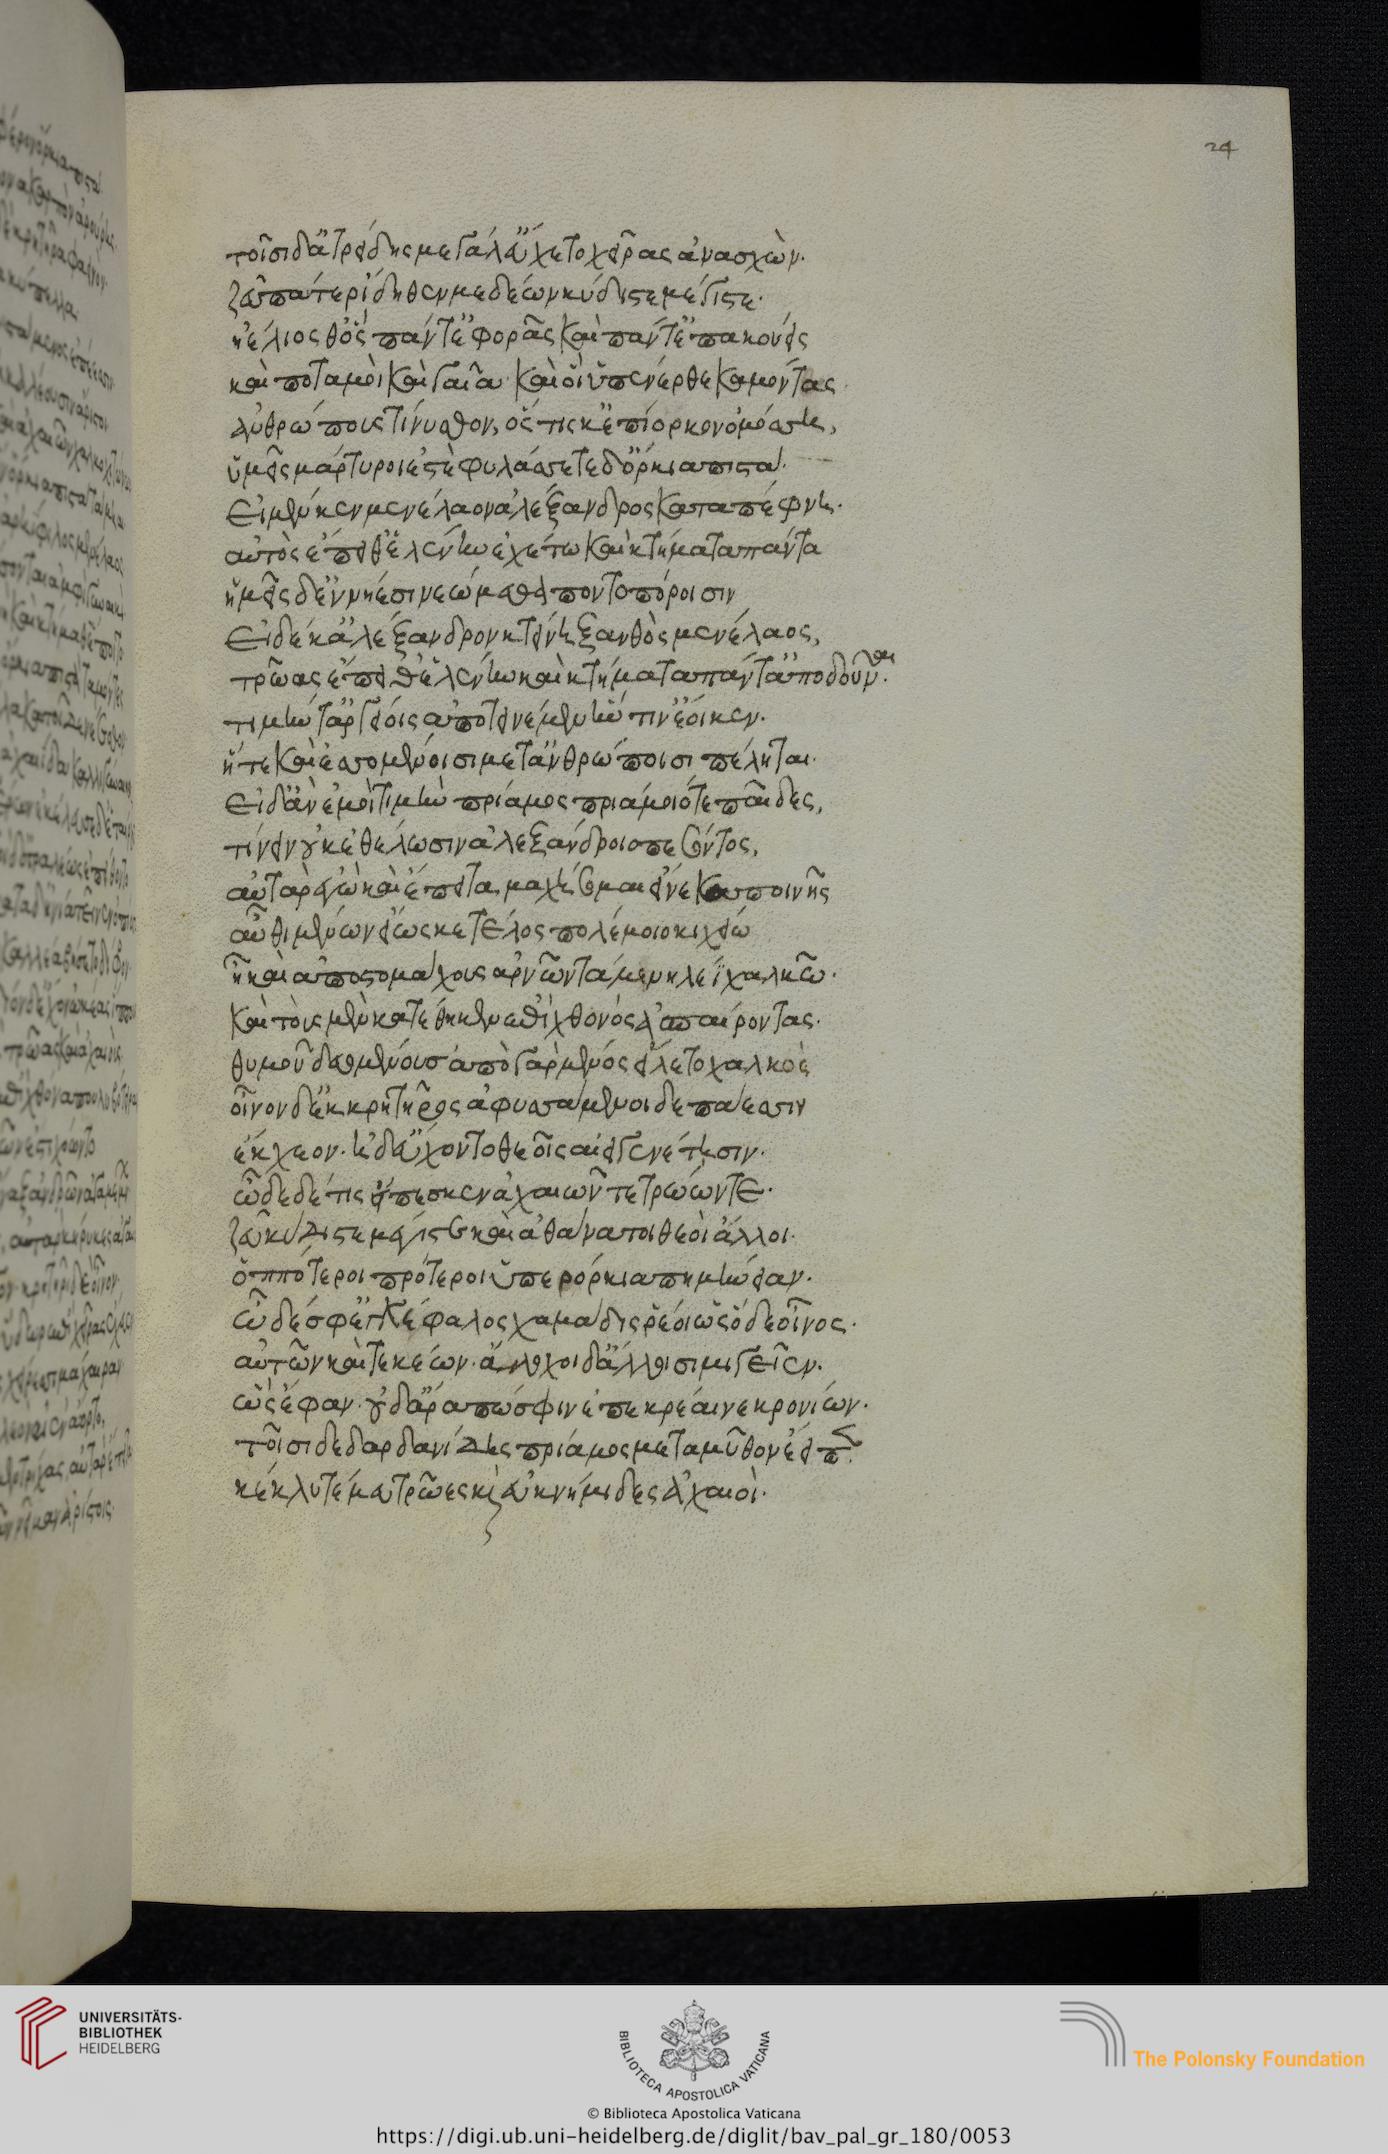 24
τοῖσι δ' ἀτρείδης μεγάλ' εὔχετο χεῖρας ἀνασχών.
ζεῦ πάτερ ἴδηθεν μεδέων κύδιστε μέγιστε.
ἠέλιος θ' ὃς πάντ' ἐφορᾶς καὶ πάντ' ἐπακούεις
καὶ ποταμοὶ καὶ γαῖα καὶ οἳ ὑπένερθε καμόντας
ἀνθρώπους τίνυσθον, ὅς τις κ' ἐπίορκον ὀμόσση,
ὑμεῖς μάρτυροι ἐστὲ φυλάσσετε δ' ὅρκια πιστά.
Εἰ μέν κεν μενέλαον ἀλέξανδρος καταπέφνη.
αὐτὸς ἔπειθ' ἑλένην ἐχέτω καὶ κτήματα πάντα
ἡμεῖς δ' ἐν νήεσι νεώμεθα ποντοπόροισιν
Εἰ δέ κ' ἀλέξανδρον κτείνη ξανθὸς μενέλαος,
τρῶας ἔπειθ' ἑλένην καὶ κτήματα πάντ' ἀποδοῦναι.
τιμὴν τ' ἀργείοις ἀποτεινέμεν ἥν τιν' ἔοικεν.
ἥτε καὶ ἐσσομένοισι μετ' ἀνθρώποισι πέληται.
Εἰ δ' ἂν ἐμοὶ τιμὴν πρίαμος πριάμοιό τε παῖδες,
τίνειν οὐκ ἐθέλωσιν ἀλεξάνδροιο πεσόντος,
αὐτὰρ ἐγὼ καὶ ἔπειτα μαχέσομαι εἵνεκα ποινῆς
αὖθι μένων εἵως κε τέλος πολέμοιο κιχείω
ἦ καὶ ἀπὸ στομάχους ἀρνῶν τάμε νηλέϊ χαλκῶ.
καὶ τοὺς μὲν κατέθηκεν ἐπὶ χθονὸς ἀσπαίροντας.
θυμοῦ δευομένους ἀπὸ γὰρ μένος εἵλετο χαλκὸς
οἶνον δ' ἐκ κρητῆρος ἀφυσσάμενοι δεπάεσσιν
ἔκχεον. ἠδ' εὔχοντο θεοῖς αἰειγενέτησιν.
ὧδε δέ τις εἴπεσκεν ἀχαιῶν τε τρώων τε.
ζεῦ κύδιστε μέγιστε καὶ ἀθάνατοι θεοὶ ἄλλοι.
ὁππότεροι πρότεροι ὑπὲρ ὅρκια πημήνειαν.
ὧδέ σφ' ἐγκέφαλος χαμάδις ῥέοι ὡς ὅδε οἶνος.
αὐτῶν καὶ τεκέων. ἄλοχοι δ' ἄλλοισι μιγεῖεν.
ὣς ἔφαν. οὐδ' ἄρα πώ σφιν ἐπεκρέαινε κρονίων.
τοῖσι δὲ δαρδανίδης πρίαμος μετὰ μῦθον ἔειπ.
κέκλυτέ μευ τρῶες κὶ ἐυκνήμιδες ἀχαιοί.
UNIVERSITÄTS-
BIBLIOTHEK
HEIDELBERG
BIBLIOTECA APOSTOLICA VATICANA
© Biblioteca Apostolica Vaticana
The Polonsky Foundation
https://digi.ub.uni-heidelberg.de/diglit/bav_pal_gr_180/0053